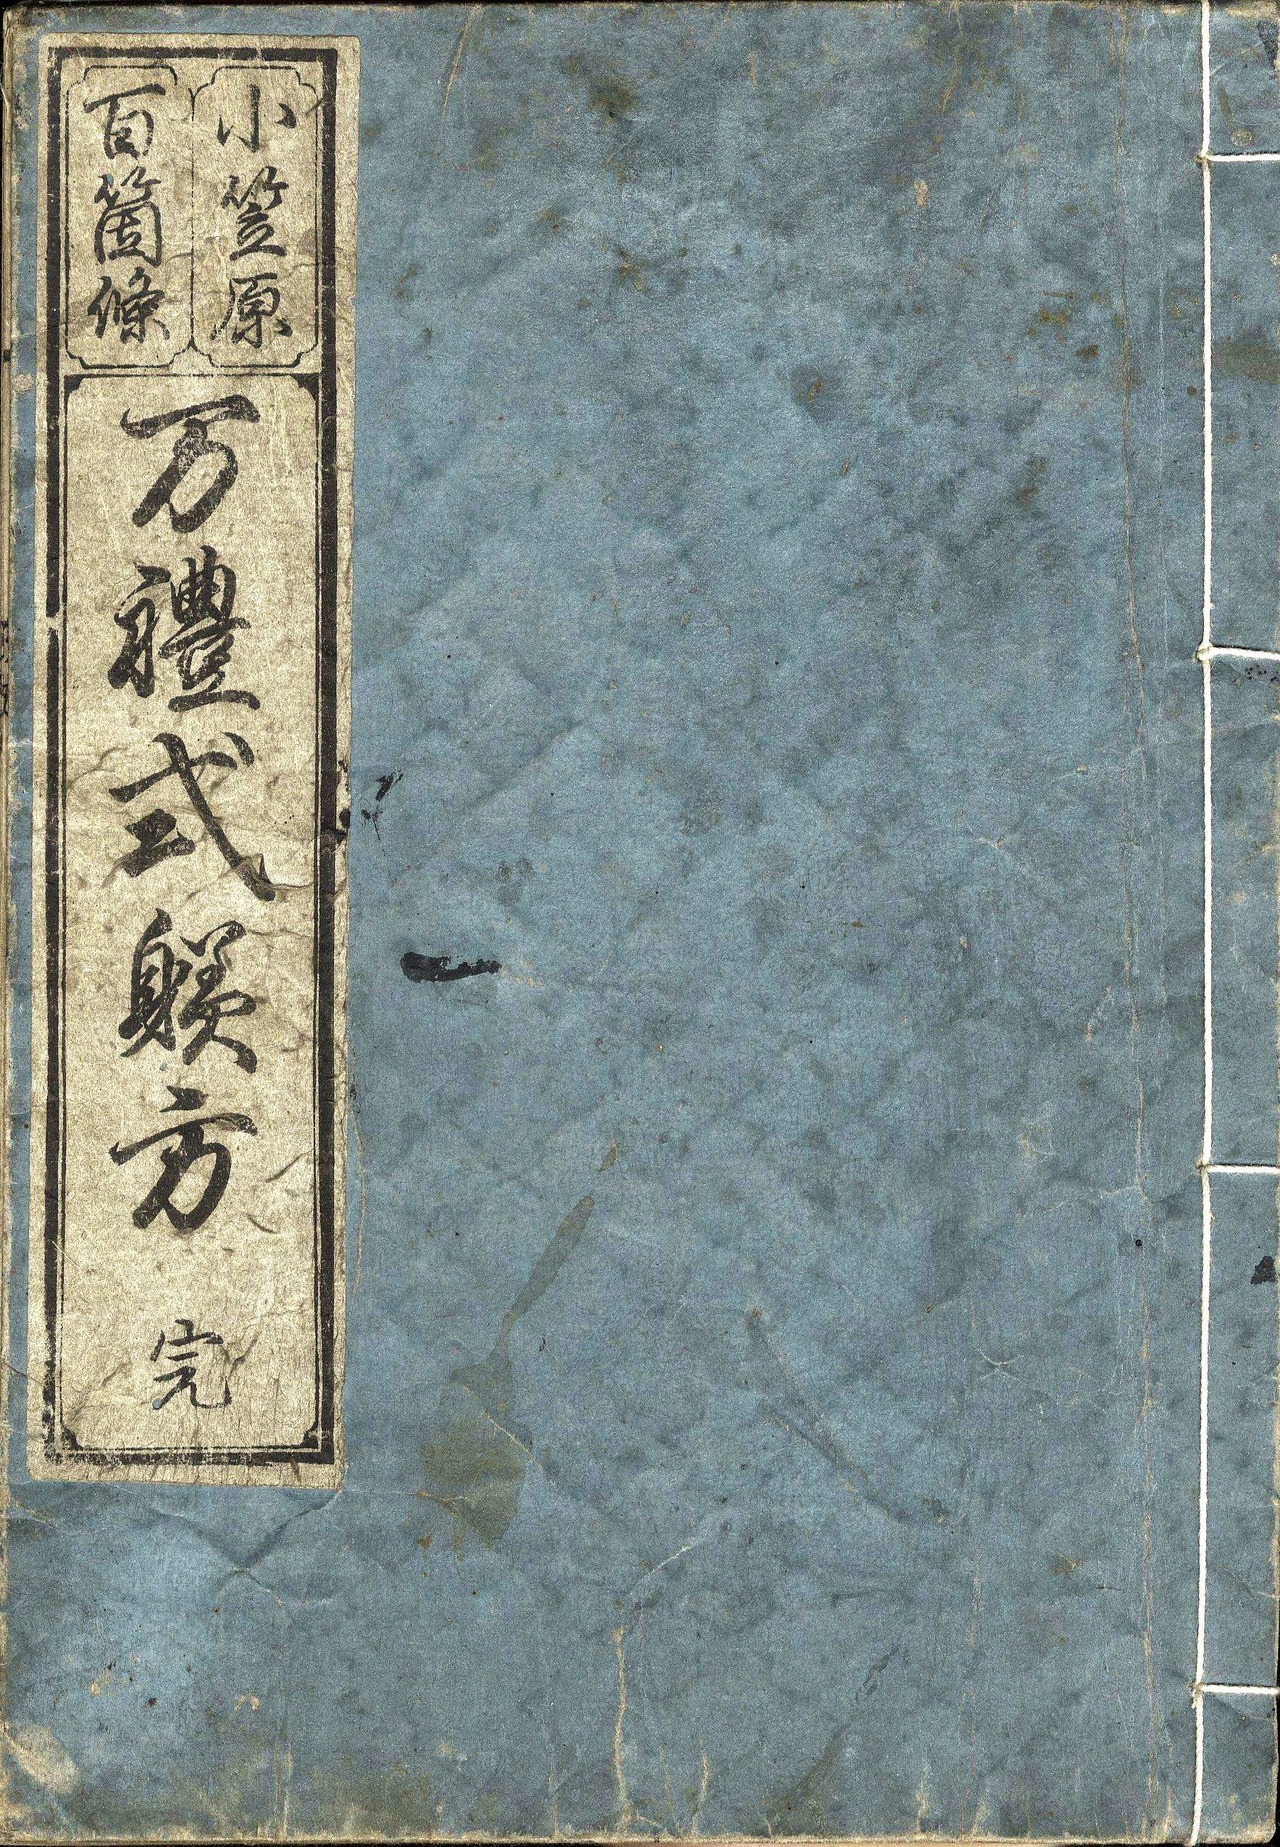 小笠原
百箇條
万禮式躾方
完